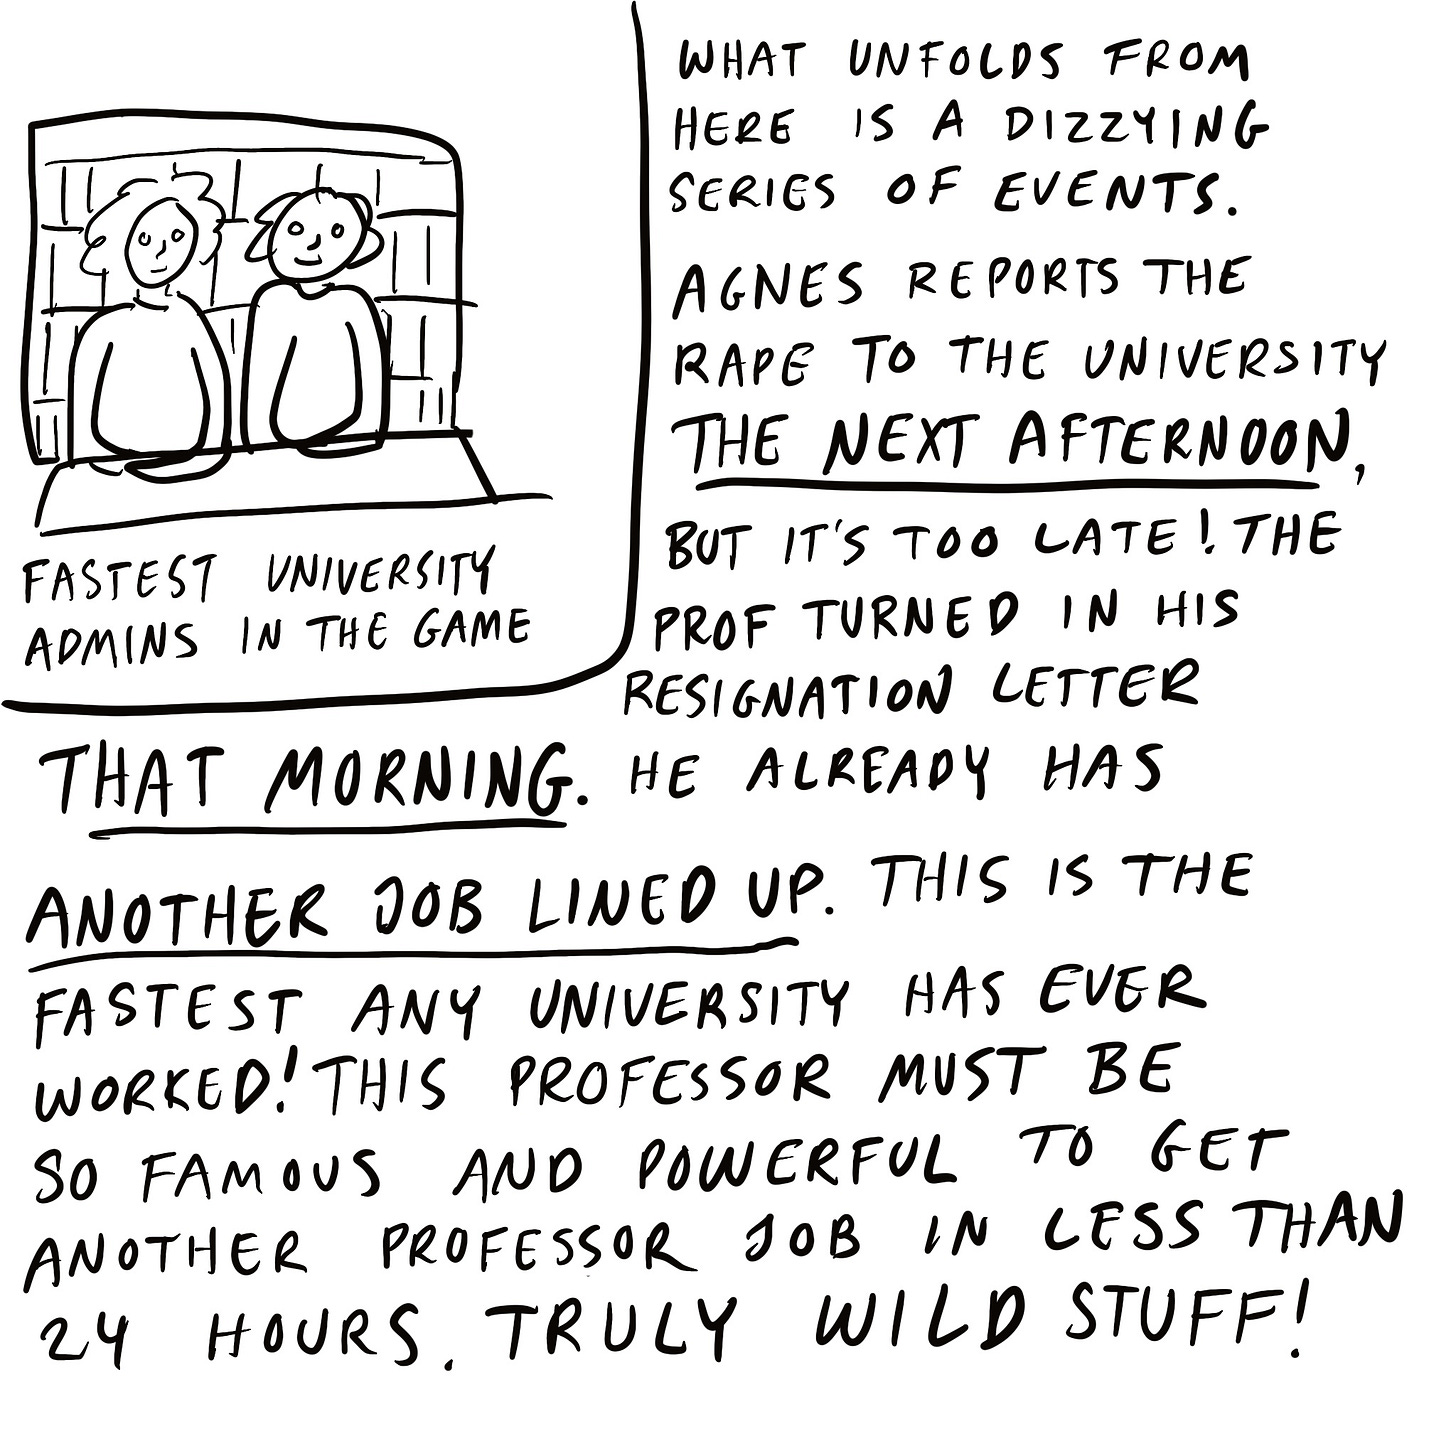 FASTEST UNIVERSITY
ADMINS IN THE GAME
WHAT UNFOLDS FROM
HERE IS A DIZZYING
SERIES OF EVENTS.
AGNES REPORTS THE
RAPE TO THE UNIVERSITY
THE NEXT AFTERNOON,
BUT IT'S TOO LATE! THE
PROF TURNED IN HIS
RESIGNATION LETTER
THAT MORNING. HE ALREADY HAS
ANOTHER JOB LINED UP. THIS IS THE
FASTEST ANY UNIVERSITY HAS EVER
WORKED! THIS PROFESSOR MUST BE
SO FAMOUS AND POWERFUL TO GET
ANOTHER PROFESSOR JOB IN LESS THAN
24 HOURS. TRULY WILD STUFF!